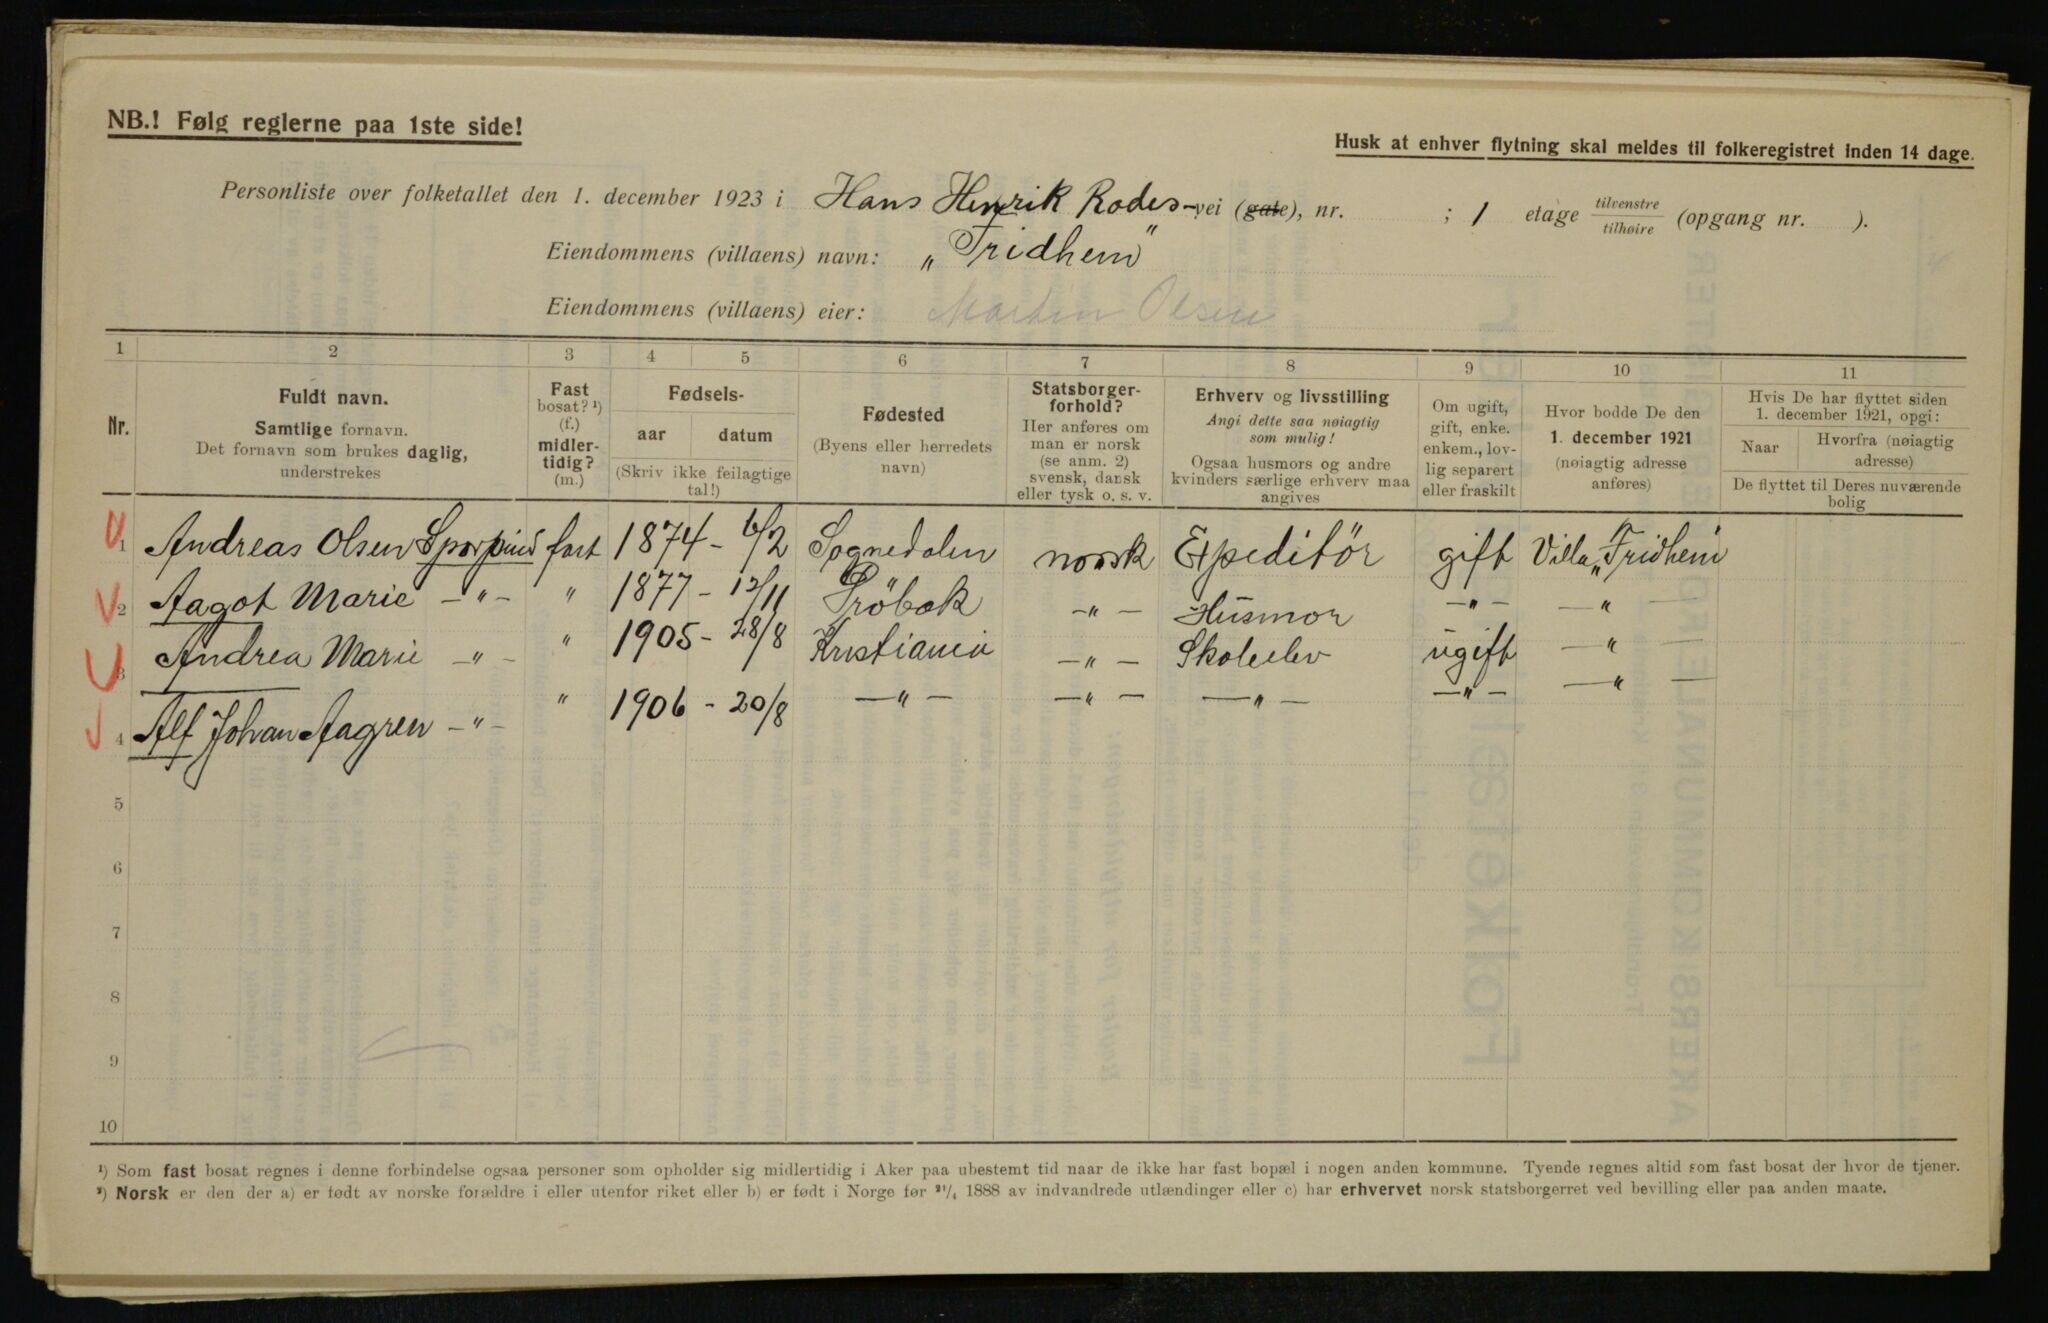 NB.! Følg reglerne paa 1ste side!
Husk at enhver flytning skal meldes til folkeregistret inden 14 dage.
Personliste over folketallet den 1. december 1923 i Hans Henrik Rodes-vei (gate), nr. ; 1 etage tilvenstre/tilhøire (opgang nr. ).
Eiendommens (villaens) navn: „Fridhem"
Eiendommens (villaens) eier: Martin Olsen
1 2 3 4 5 6 7 8 9 10 11
Nr.
Fuldt navn.
Samtlige fornavn.
Det fornavn som brukes daglig,
understrekes
Fast
bosat? ¹)
(f.)
midler-
tidig?
(m.)
Fødsels-
aar datum
(Skriv ikke feilagtige
tal!)
Fødested
(Byens eller herredets
navn)
Statsborger-
forhold?
Her anføres om
man er norsk
(se anm. 2)
svensk, dansk
eller tysk o. s. v.
Erhverv og livsstilling
Angi dette saa nøiagtig
som mulig!
Ogsaa husmors og andre
kvinders særlige erhverv maa
angives
Om ugift,
gift, enke.
enkem., lov-
lig separert
eller fraskilt
Hvor bodde De den
1. december 1921
(nøiagtig adresse
anføres)
Hvis De har flyttet siden
1. december 1921, opgi:
Naar
Hvorfra (nøiagtig
adresse)
De flyttet til Deres nuværende
bolig
1 Andreas Olsen fast 1874 - 6/2 Sognedalen norsk Expeditör gift Villa „Fridhem"
2 Aagot Marie —"— " 1877 - 12/11 Dröbak —"— Husmor —"— —"—
3 Andrea Marie —"— " 1905 - 28/8 Kristiania —"— Skoleelev ugift —"—
4 Alf Johan Aagren —"— " 1906 - 20/8 —"— —"— —"— —"— —"—
5
6
7
8
9
10
¹) Som fast bosat regnes i denne forbindelse ogsaa personer som opholder sig midlertidig i Aker paa ubestemt tid naar de ikke har fast bopæl i nogen anden kommune. Tyende regnes altid som fast bosat der hvor de tjener.
²) Norsk er den der a) er født av norske forældre i eller utenfor riket eller b) er født i Norge før ²¹/₄ 1888 av indvandrede utlændinger eller c) har erhvervet norsk statsborgerret ved bevilling eller paa anden maate.